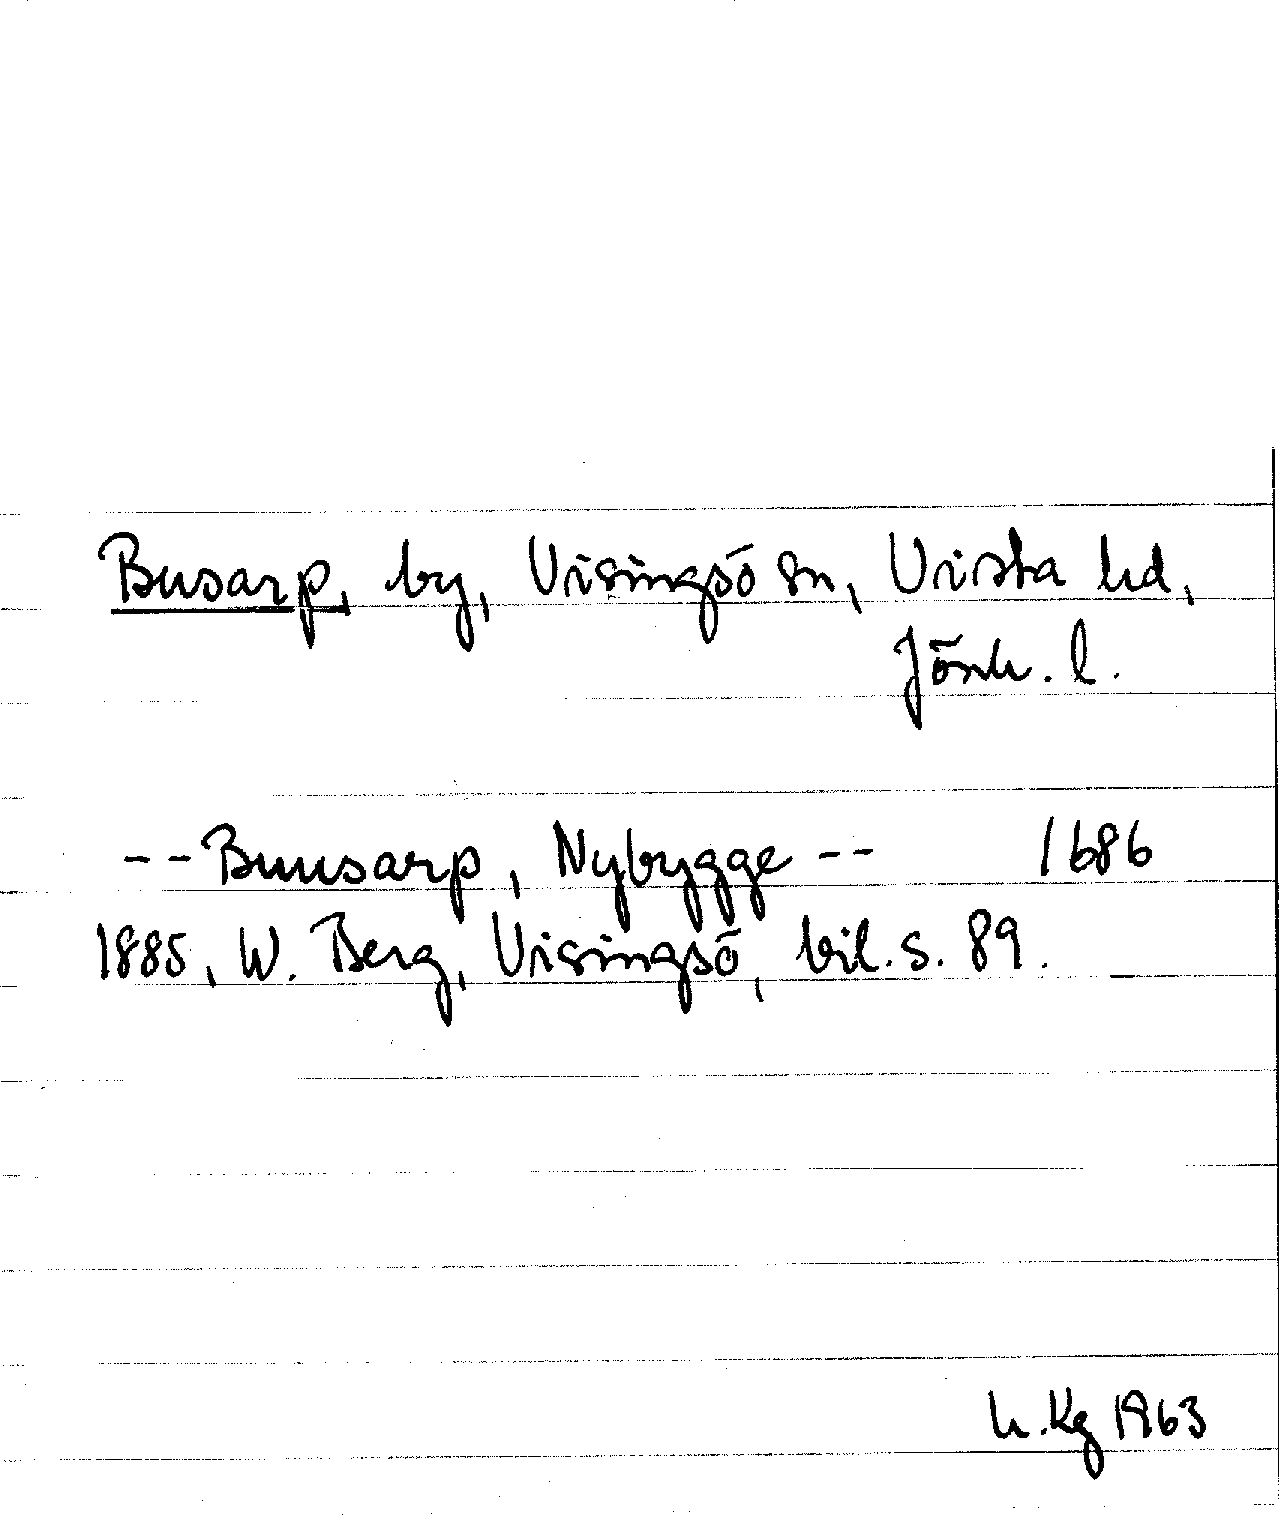 Busarp, by, Visingsö sn, Vista hd,
Jönk. l.
-- Buusarp, Nybygge -- 1686
1885, W. Berg, Visingsö, bil. s. 89.
h. Kg 1963